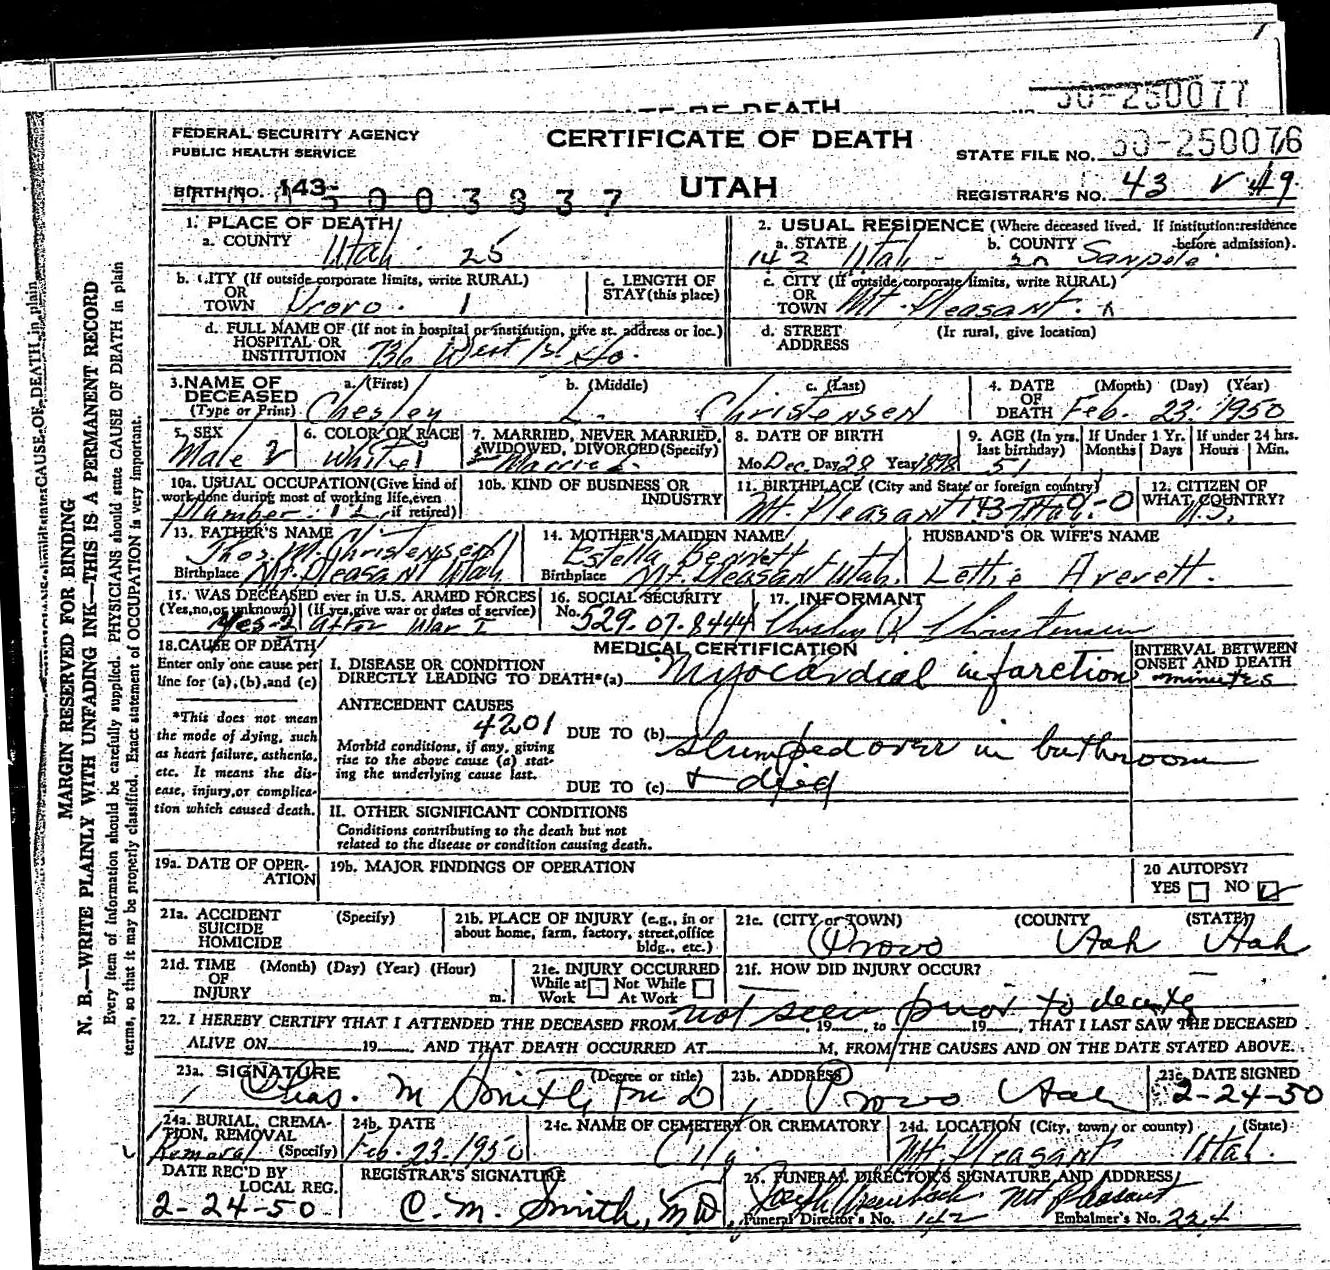 50-250077
TE OF DEATH
FEDERAL SECURITY AGENCY
PUBLIC HEALTH SERVICE
CERTIFICATE OF DEATH
UTAH
STATE FILE NO. 50-250076
BIRTH NO. 143- 5003837
REGISTRAR'S NO. 43 V 49
MARGIN RESERVED FOR BINDING
N. B.—WRITE PLAINLY WITH UNFADING INK—THIS IS A PERMANENT RECORD
Every item of information should be carefully supplied. PHYSICIANS should state CAUSE OF DEATH in plain
terms, so that it may be properly classified. Exact statement of OCCUPATION is very important.
1. PLACE OF DEATH
a. COUNTY Utah 25
2. USUAL RESIDENCE (Where deceased lived. If institution: residence before admission).
a. STATE 142 Utah - b. COUNTY 20 Sanpete
b. CITY (If outside corporate limits, write RURAL)
OR
TOWN Provo. 1
c. LENGTH OF
STAY (this place)
c. CITY (If outside corporate limits, write RURAL)
OR
TOWN Mt. Pleasant.
d. FULL NAME OF (If not in hospital or institution, give st. address or loc.)
HOSPITAL OR
INSTITUTION 736 West 1st So.
d. STREET (If rural, give location)
ADDRESS
3. NAME OF
DECEASED
(Type or Print)
a. (First) b. (Middle) c. (Last)
Chesley L. Christensen
4. DATE (Month) (Day) (Year)
OF
DEATH Feb. 23. 1950
5. SEX
Male 2
6. COLOR OR RACE
White 1
7. MARRIED, NEVER MARRIED,
WIDOWED, DIVORCED (Specify)
Married.
8. DATE OF BIRTH
Mo Dec. Day 28 Year 1898
9. AGE (In yrs. last birthday)
51
If Under 1 Yr.
Months Days
If under 24 hrs.
Hours Min.
10a. USUAL OCCUPATION (Give kind of
work done during most of working life, even
if retired)
Plumber.
10b. KIND OF BUSINESS OR
INDUSTRY
11. BIRTHPLACE (City and State or foreign country)
Mt. Pleasant 143 Utah. -0
12. CITIZEN OF
WHAT COUNTRY?
U.S.
13. FATHER'S NAME
Thos. M. Christensen
Birthplace Mt. Pleasant Utah
14. MOTHER'S MAIDEN NAME
Estella Bennett
Birthplace Mt. Pleasant Utah.
HUSBAND'S OR WIFE'S NAME
Lettie Averett.
15. WAS DECEASED ever in U.S. ARMED FORCES
(Yes, no, or unknown) (If yes, give war or dates of service)
Yes-2 After War I
16. SOCIAL SECURITY
No. 529.07.8444
17. INFORMANT
Chesley R Christensen
18. CAUSE OF DEATH
Enter only one cause per
line for (a), (b), and (c)
*This does not mean
the mode of dying, such
as heart failure, asthenia,
etc. It means the dis-
ease, injury, or complica-
tion which caused death.
MEDICAL CERTIFICATION
I. DISEASE OR CONDITION
DIRECTLY LEADING TO DEATH*(a) Myocardial infarction
INTERVAL BETWEEN
ONSET AND DEATH
minutes
ANTECEDENT CAUSES
4201
Morbid conditions, if any, giving
rise to the above cause (a) stat-
ing the underlying cause last.
DUE TO (b) slumped over in bathroom
DUE TO (c) + died
II. OTHER SIGNIFICANT CONDITIONS
Conditions contributing to the death but not
related to the disease or condition causing death.
19a. DATE OF OPER-
ATION
19b. MAJOR FINDINGS OF OPERATION
20 AUTOPSY?
YES NO
21a. ACCIDENT (Specify)
SUICIDE
HOMICIDE
21b. PLACE OF INJURY (e.g., in or
about home, farm, factory, street, office
bldg., etc.)
21c. (CITY or TOWN) (COUNTY (STATE)
Provo Utah Utah
21d. TIME (Month) (Day) (Year) (Hour)
OF
INJURY m.
21e. INJURY OCCURRED
While at Work Not While At Work
21f. HOW DID INJURY OCCUR?
22. I HEREBY CERTIFY THAT I ATTENDED THE DECEASED FROM not seen prior to death, 19, to 19, THAT I LAST SAW THE DECEASED
ALIVE ON 19, AND THAT DEATH OCCURRED AT M, FROM THE CAUSES AND ON THE DATE STATED ABOVE.
23a. SIGNATURE (Degree or title)
Chas. M Smith, M D
23b. ADDRESS
Provo Utah
23c. DATE SIGNED
2-24-50
24a. BURIAL, CREMA-
TION, REMOVAL
(Specify)
Removal
24b. DATE
Feb. 23. 1950
24c. NAME OF CEMETERY OR CREMATORY
City.
24d. LOCATION (City, town, or county) (State)
Mt. Pleasant Utah.
DATE REC'D BY
LOCAL REG.
2-24-50
REGISTRAR'S SIGNATURE
C. M. Smith, MD
25. FUNERAL DIRECTOR'S SIGNATURE AND ADDRESS
Mt Pleasant
Funeral Director's No. 142 Embalmer's No. 224